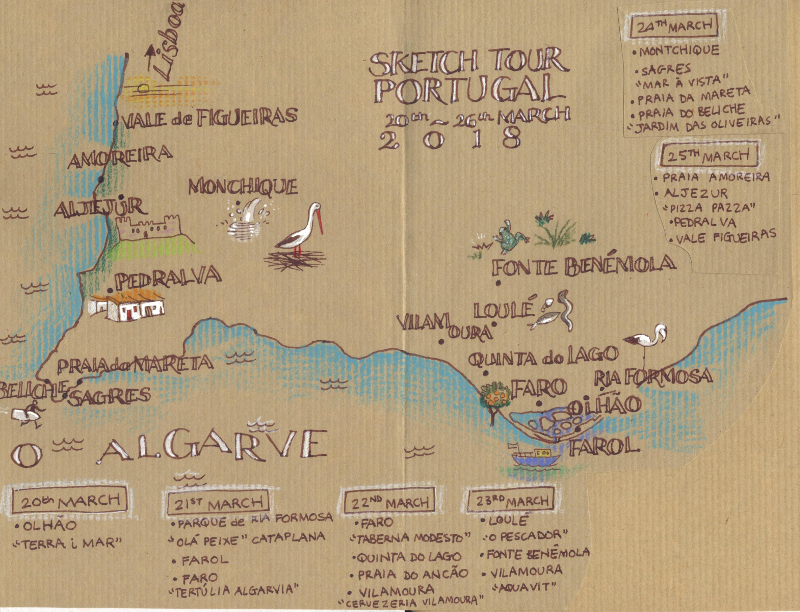 Lisboa
SKETCH TOUR
PORTUGAL
20th ~ 26th MARCH
2018
VALE de FIGUEIRAS
AMOREIRA
ALJEJUR
MONCHIQUE
PEDRALVA
FONTE BENÉMOLA
LOULÉ
VILAM
OURA
QUINTA do LAGO
PRAIA da MARETA
BELICHE
SAGRES
FARO
RIA FORMOSA
OLHÃO
FAROL
O ALGARVE
24TH MARCH
• MONTCHIQUE
• SAGRES
"MAR À VISTA"
• PRAIA DA MARETA
• PRAIA DO BELICHE
"JARDIM DAS OLIVEIRAS"
25TH MARCH
• PRAIA AMOREIRA
• ALJEZUR
"PIZZA PAZZA"
• PEDRALVA
• VALE FIGUEIRAS
20th MARCH
• OLHÃO
"TERRA i MAR"
21ST MARCH
• PARQUE de RIA FORMOSA
"OLÁ PEIXE" CATAPLANA
• FAROL
• FARO
"TERTÚLIA ALGARVIA"
22ND MARCH
• FARO
"TABERNA MODESTO"
• QUINTA DO LAGO
• PRAIA DO ANCÃO
• VILAMOURA
"CERVEZERIA VILAMOURA"
23RD MARCH
• LOULÉ
"O PESCADOR"
• FONTE BENÉMOLA
• VILAMOURA
"AQUAVIT"